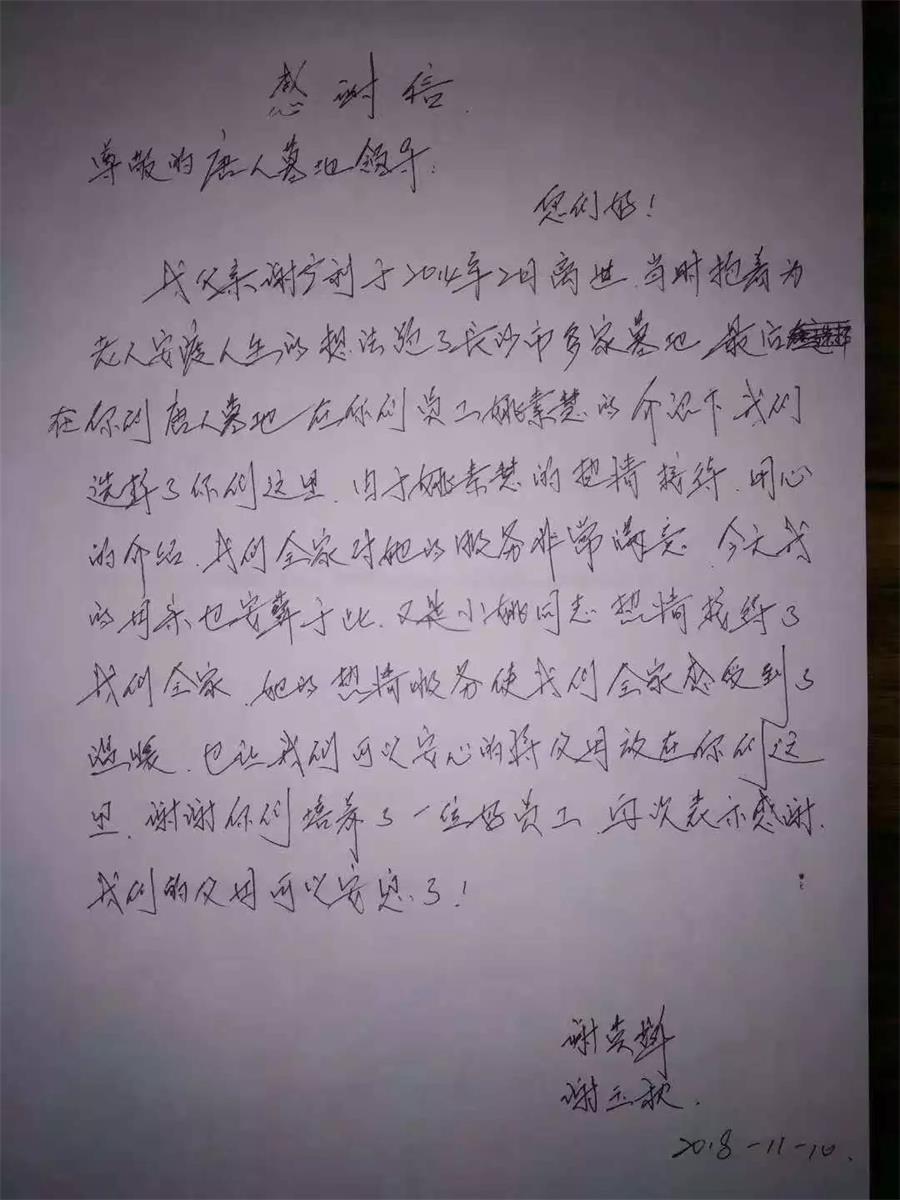 感谢信
尊敬的唐人墓地领导:
您们好!
我父亲谢宁利于2014年2月离世.当时抱着为
老人安渡人生的想法跑了长沙市多家墓地.最后
在你们唐人墓地在你们员工姚素慧的介绍下我们
选择了你们这里.由于姚素慧的热情接待.用心
的介绍.我们全家对她的服务非常满意.今天我
的母亲也安葬于此.又是小姚同志热情接待了
我们全家.她的热情服务使我们全家感受到了
温暖.也让我们可以安心的将父母放在你们这
里.谢谢你们培养了一位好员工.再次表示感谢.
我们的父母可以安息了!
谢
谢立秋.
2018-11-10.